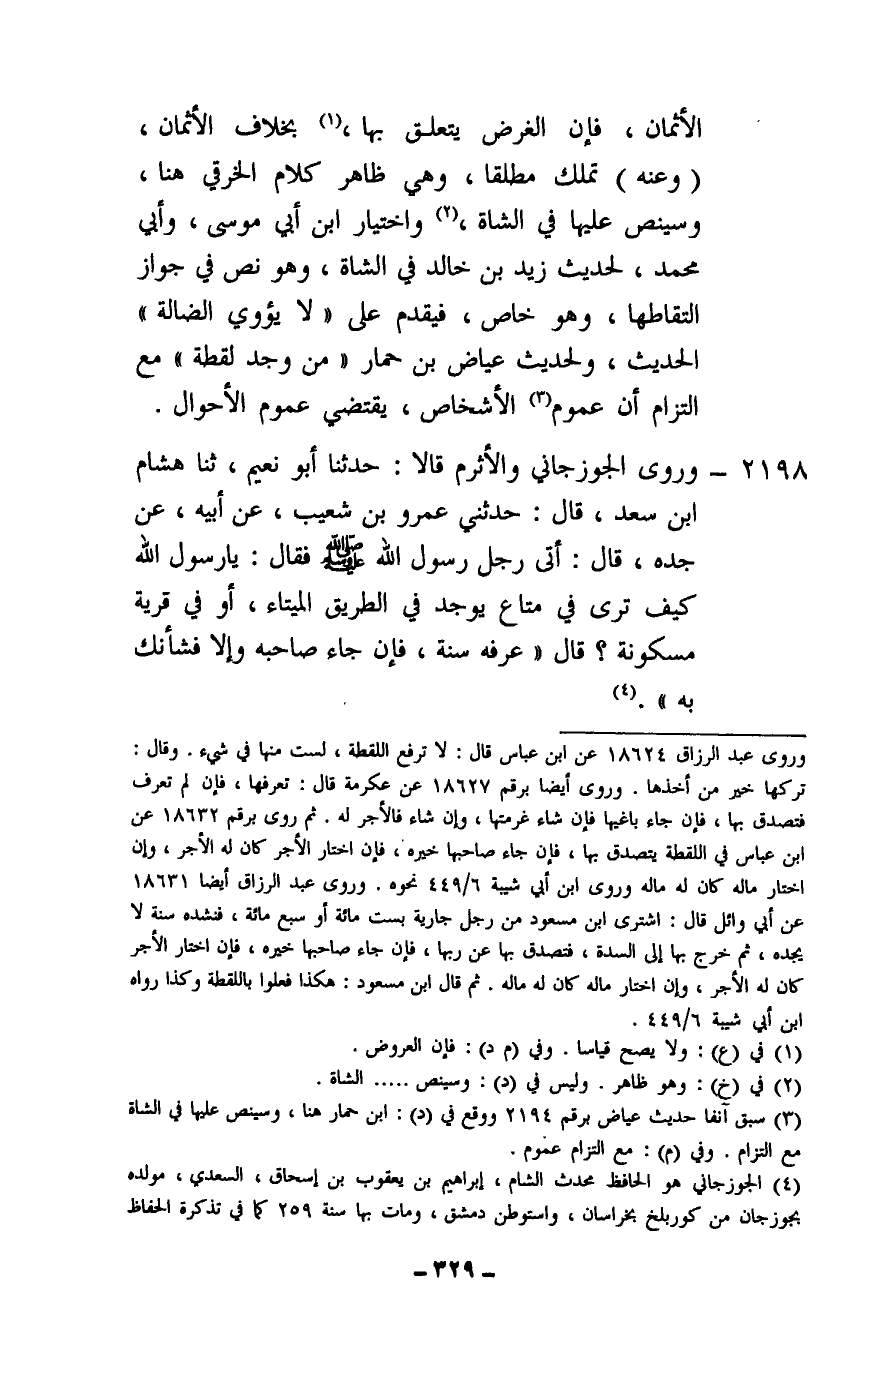 الأثمان ، فإن الغرض يتعلـق بها ،(١) بخلاف الأثمان ،
( وعنه ) تملك مطلقا ، وهي ظاهر كلام الخرقي هنا ،
وسينص عليها في الشاة ،(٢) واختيار ابن أبي موسى ، وأبي
محمد ، لحديث زيد بن خالد في الشاة ، وهو نص في جواز
التقاطها ، وهو خاص ، فيقدم على « لا يؤوي الضالة »
الحديث ، ولحديث عياض بن حمار « من وجد لقطة » مع
التزام أن عموم(٣) الأشخاص ، يقتضي عموم الأحوال .
٢١٩٨ – وروى الجوزجاني والأثرم قالا : حدثنا أبو نعيم ، ثنا هشام
ابن سعد ، قال : حدثني عمرو بن شعيب ، عن أبيه ، عن
جده ، قال : أتى رجل رسول الله ﷺ فقال : يارسول الله
كيف ترى في متاع يوجد في الطريق الميتاء ، أو في قرية
مسكونة ؟ قال « عرفه سنة ، فإن جاء صاحبه وإلا فشأنك
به » .(٤)
وروى عبد الرزاق ١٨٦٢٤ عن ابن عباس قال : لا ترفع اللقطة ، لست منها في شيء . وقال :
تركها خير من أخذها . وروى أيضا برقم ١٨٦٢٧ عن عكرمة قال : تعرفها ، فإن لم تعرف
فتصدق بها ، فإن جاء باغيها فإن شاء غرمتها ، وإن شاء فالأجر له . ثم روى برقم ١٨٦٣٢ عن
ابن عباس في اللقطة يتصدق بها ، فإن جاء صاحبها خيره ، فإن اختار الأجر كان له الأجر ، وإن
اختار ماله كان له ماله وروى ابن أبي شيبة ٤٤٩/٦ نحوه . وروى عبد الرزاق أيضا ١٨٦٣١
عن أبي وائل قال : اشترى ابن مسعود من رجل جارية بست مائة أو سبع مائة ، فنشده سنة لا
يجده ، ثم خرج بها إلى السدة ، فتصدق بها عن ربها ، فإن جاء صاحبها خيره ، فإن اختار الأجر
كان له الأجر ، وإن اختار ماله كان له ماله . ثم قال ابن مسعود : هكذا فعلوا باللقطة وكذا رواه
ابن أبي شيبة ٤٤٩/٦ .
(١) في (ع) : ولا يصح قياسا . وفي (م د) : فإن العروض .
(٢) في (خ) : وهو ظاهر . وليس في (د) : وسينص ..... الشاة .
(٣) سبق آنفا حديث عياض برقم ٢١٩٤ ووقع في (د) : ابن حمار هنا ، وسينص عليها في الشاة
مع التزام . وفي (م) : مع التزام عموم .
(٤) الجوزجاني هو الحافظ محدث الشام ، إبراهيم بن يعقوب بن إسحاق ، السعدي ، مولده
بجوزجان من كوربلخ بخراسان ، واستوطن دمشق ، ومات بها سنة ٢٥٩ كما في تذكرة الحفاظ
– ٣٢٩ –